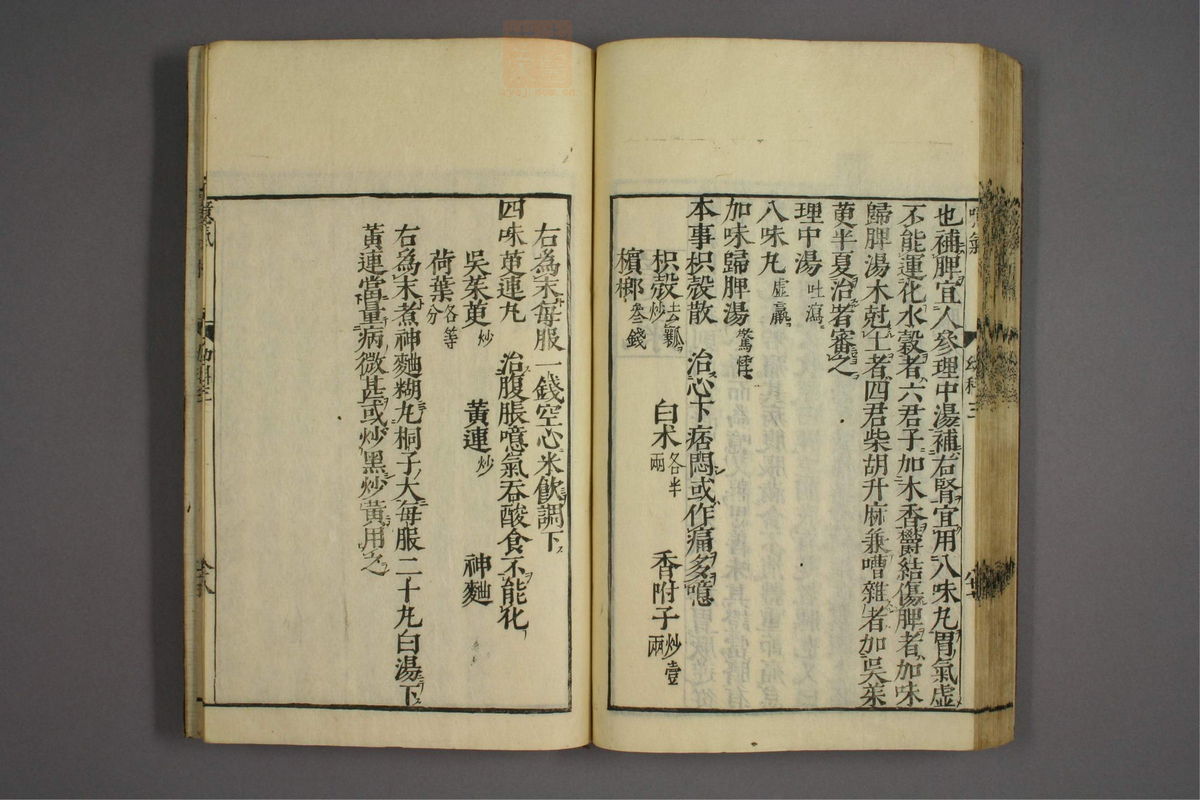 也補脾宜人參理中湯補右腎宜用八味丸胃氣虛
不能運化水穀者六君子加木香鬱結傷脾者加味
歸脾湯木尅土者四君柴胡升麻兼嘈雜者加吳茱
萸半夏治者審之
理中湯 吐瀉
八味丸 虛羸
加味歸脾湯 驚悸
本事枳殼散 治心下痞悶或作痛多噫
枳殼 去瓤炒 白朮 各半兩 香附子 炒壹兩
檳榔 叁錢
右為末每服一錢空心米飲調下
四味茰連丸 治腹脹噫氣吞酸食不能化
吳茱茰 炒 黃連 炒 神麯
荷葉 各等分
右為末煮神麯糊丸桐子大每服二十丸白湯下
黃連當量病微甚或炒黑炒黃用之